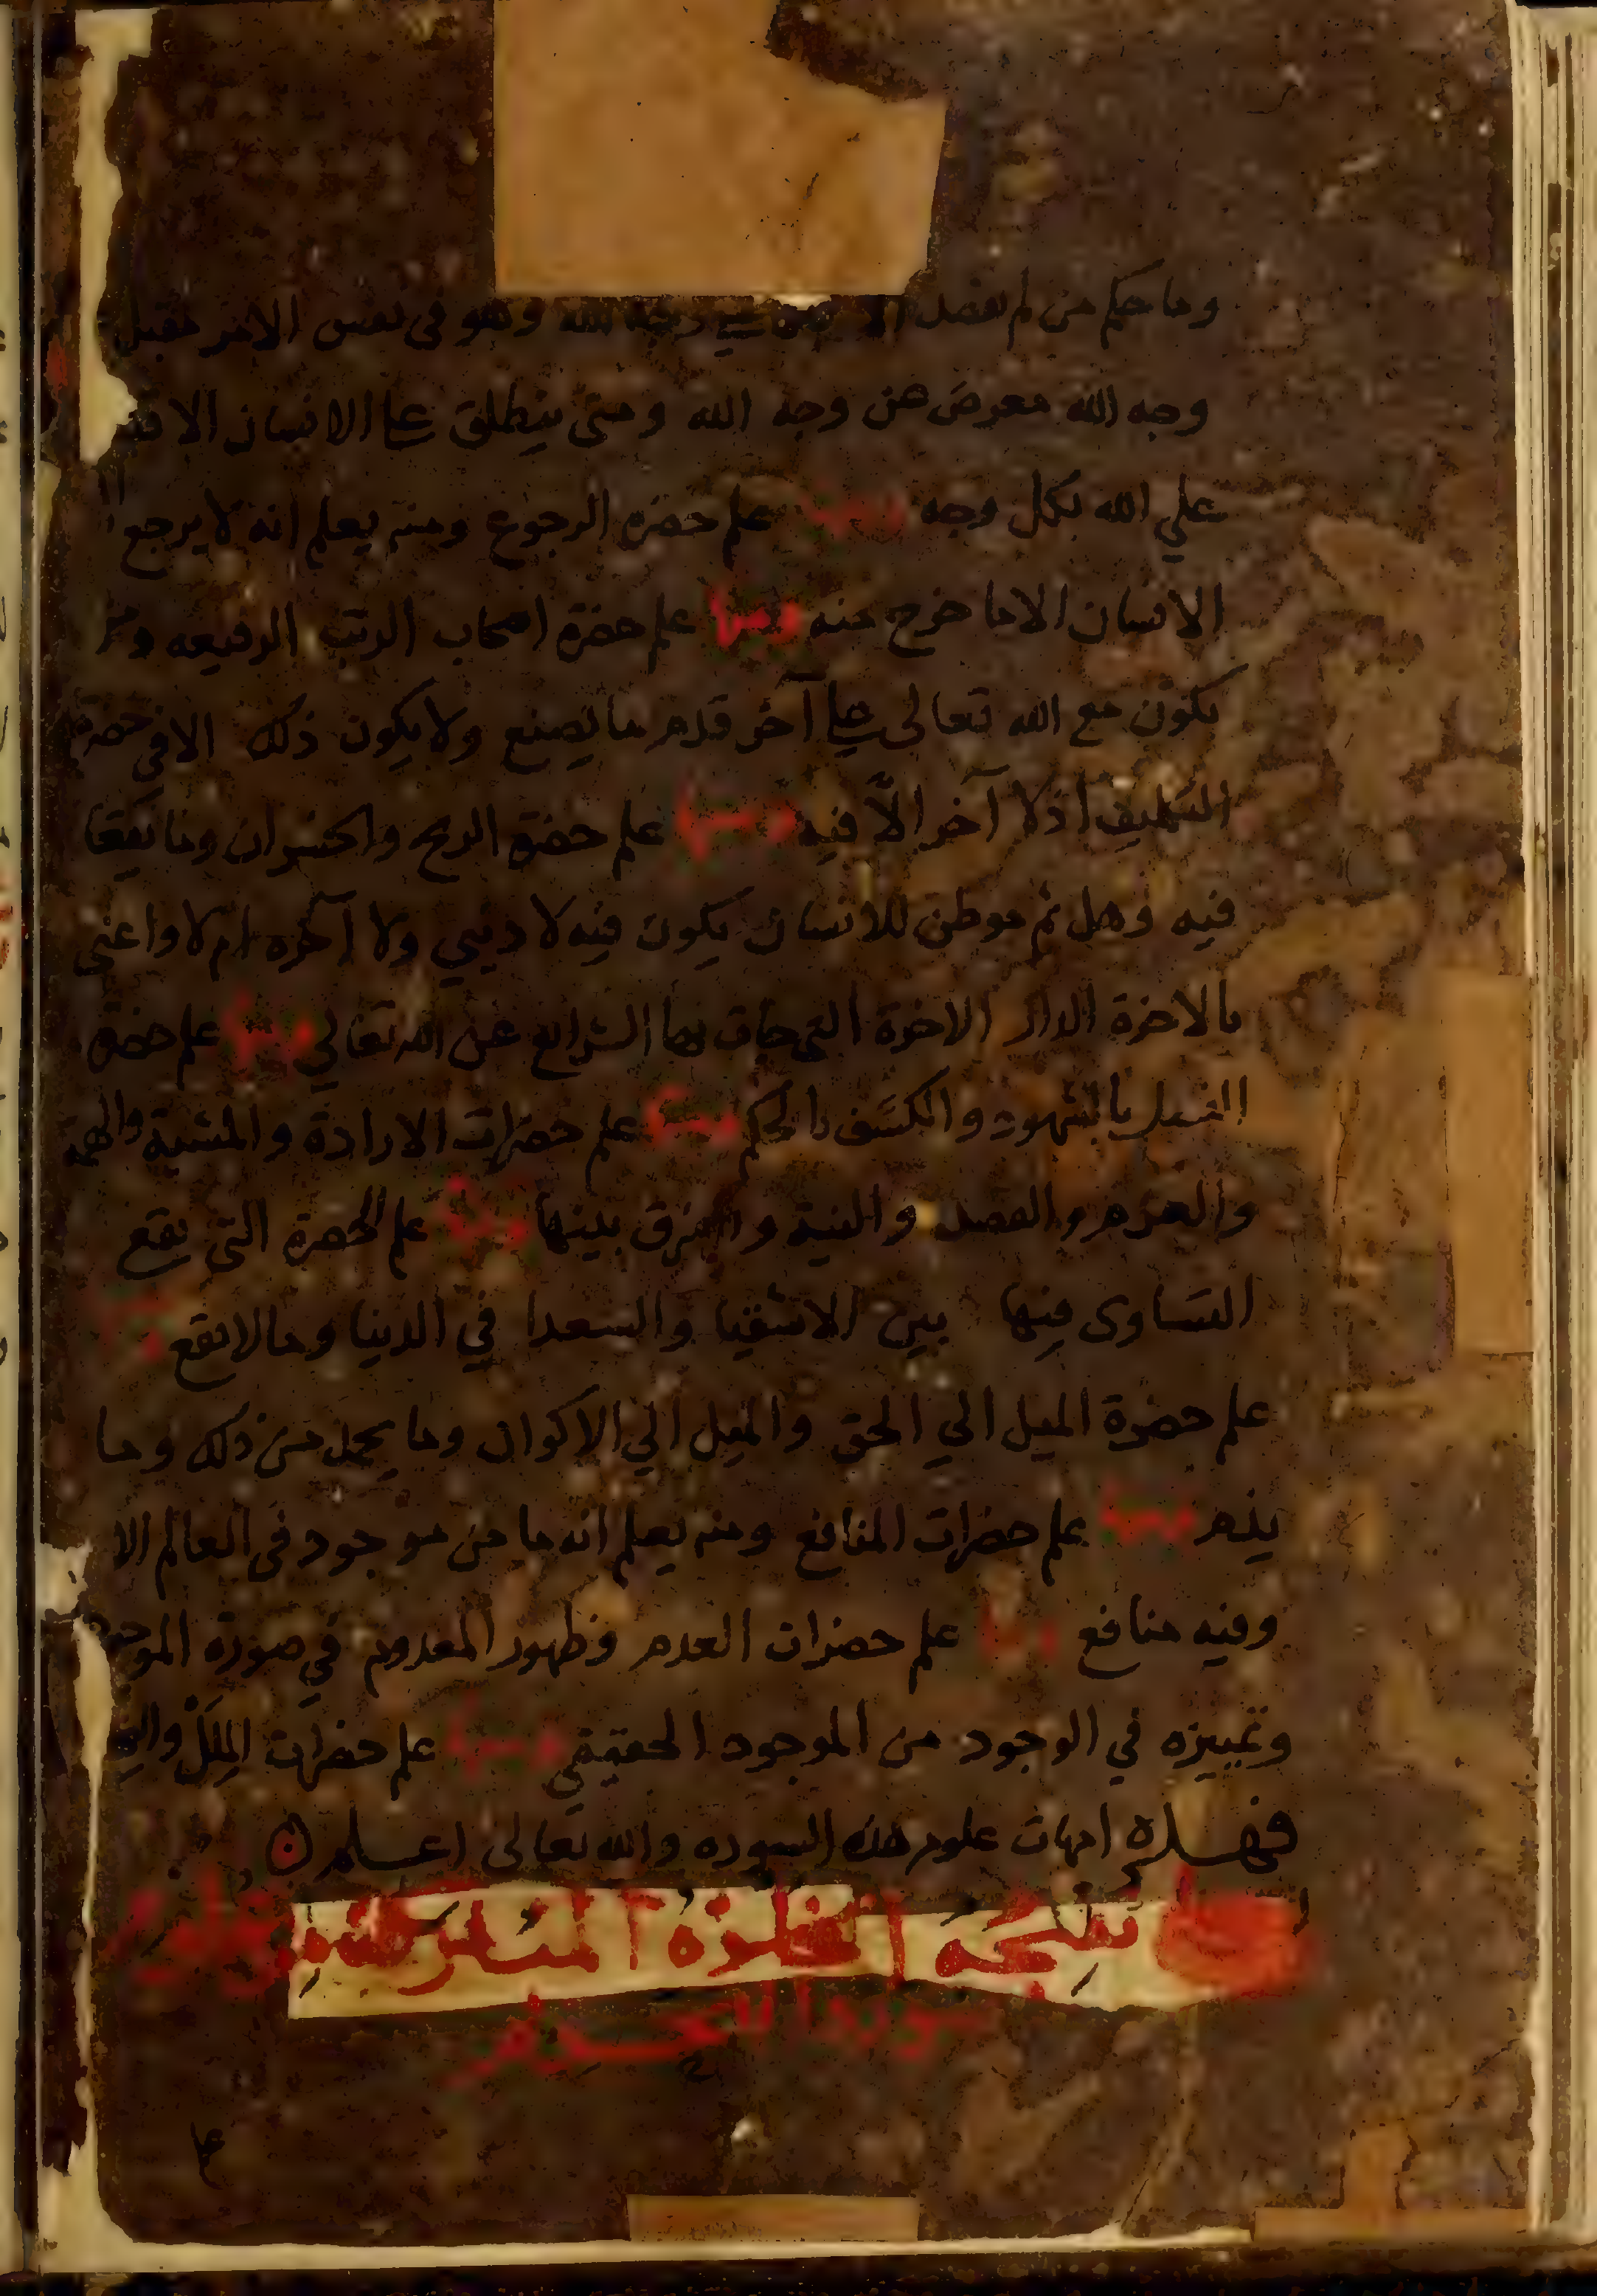 وما حكم من لم يفصل وجه الله وهو في نفس الامر مقبل
وجه الله معرض عن وجه الله ومتى ينطلق على الانسان
علي الله بكل وجه ومنها علم حضرة الرجوع ومنه يعلم انه لا يرجع
الانسان الا ما خرج منه ومنها علم حضرة اصحاب الرتب الرفيعه
يكون مع الله تعالى على آخر قدم ما يصنع ولا يكون ذلك الا في حضرة
اذ لا آخر الّا فيه ومنها علم حضرة الربح والخسران وما يقعا
فيه وهل ثم موطن للانسان يكون فيه لا دنيي ولا آخره ام لا واعني
بالاخرة الدار الاخرة التي جات بها الشرايع عن الله تعالي ومنها علم حضرة
بالشهود والكشف والحكم ومنها علم حضرات الارادة والمشية والهمة
والعزم والقصد والنية والفرق بينها ومنها علم الحضرة التي يقع
التساوى فيها بين الاشقيا والسعدا في الدنيا وما لا يقع ومنها
علم حضرة الميل الي الحق والميل الي الاكوان وما يحمد من ذلك وما
يذم ومنها علم حضرات المنافع ومنه يعلم انه ما من موجود في العالم الا
وفيه منافع ومنها علم حضرات العدم وظهور المعدوم في صورة الموجود
وتمييزه في الوجود من الموجود الحقيقي ومنها علم حضرات المِلَلْ
فهذه امهات علوم هذه السوره والله تعالى اعلم
المباركة
على